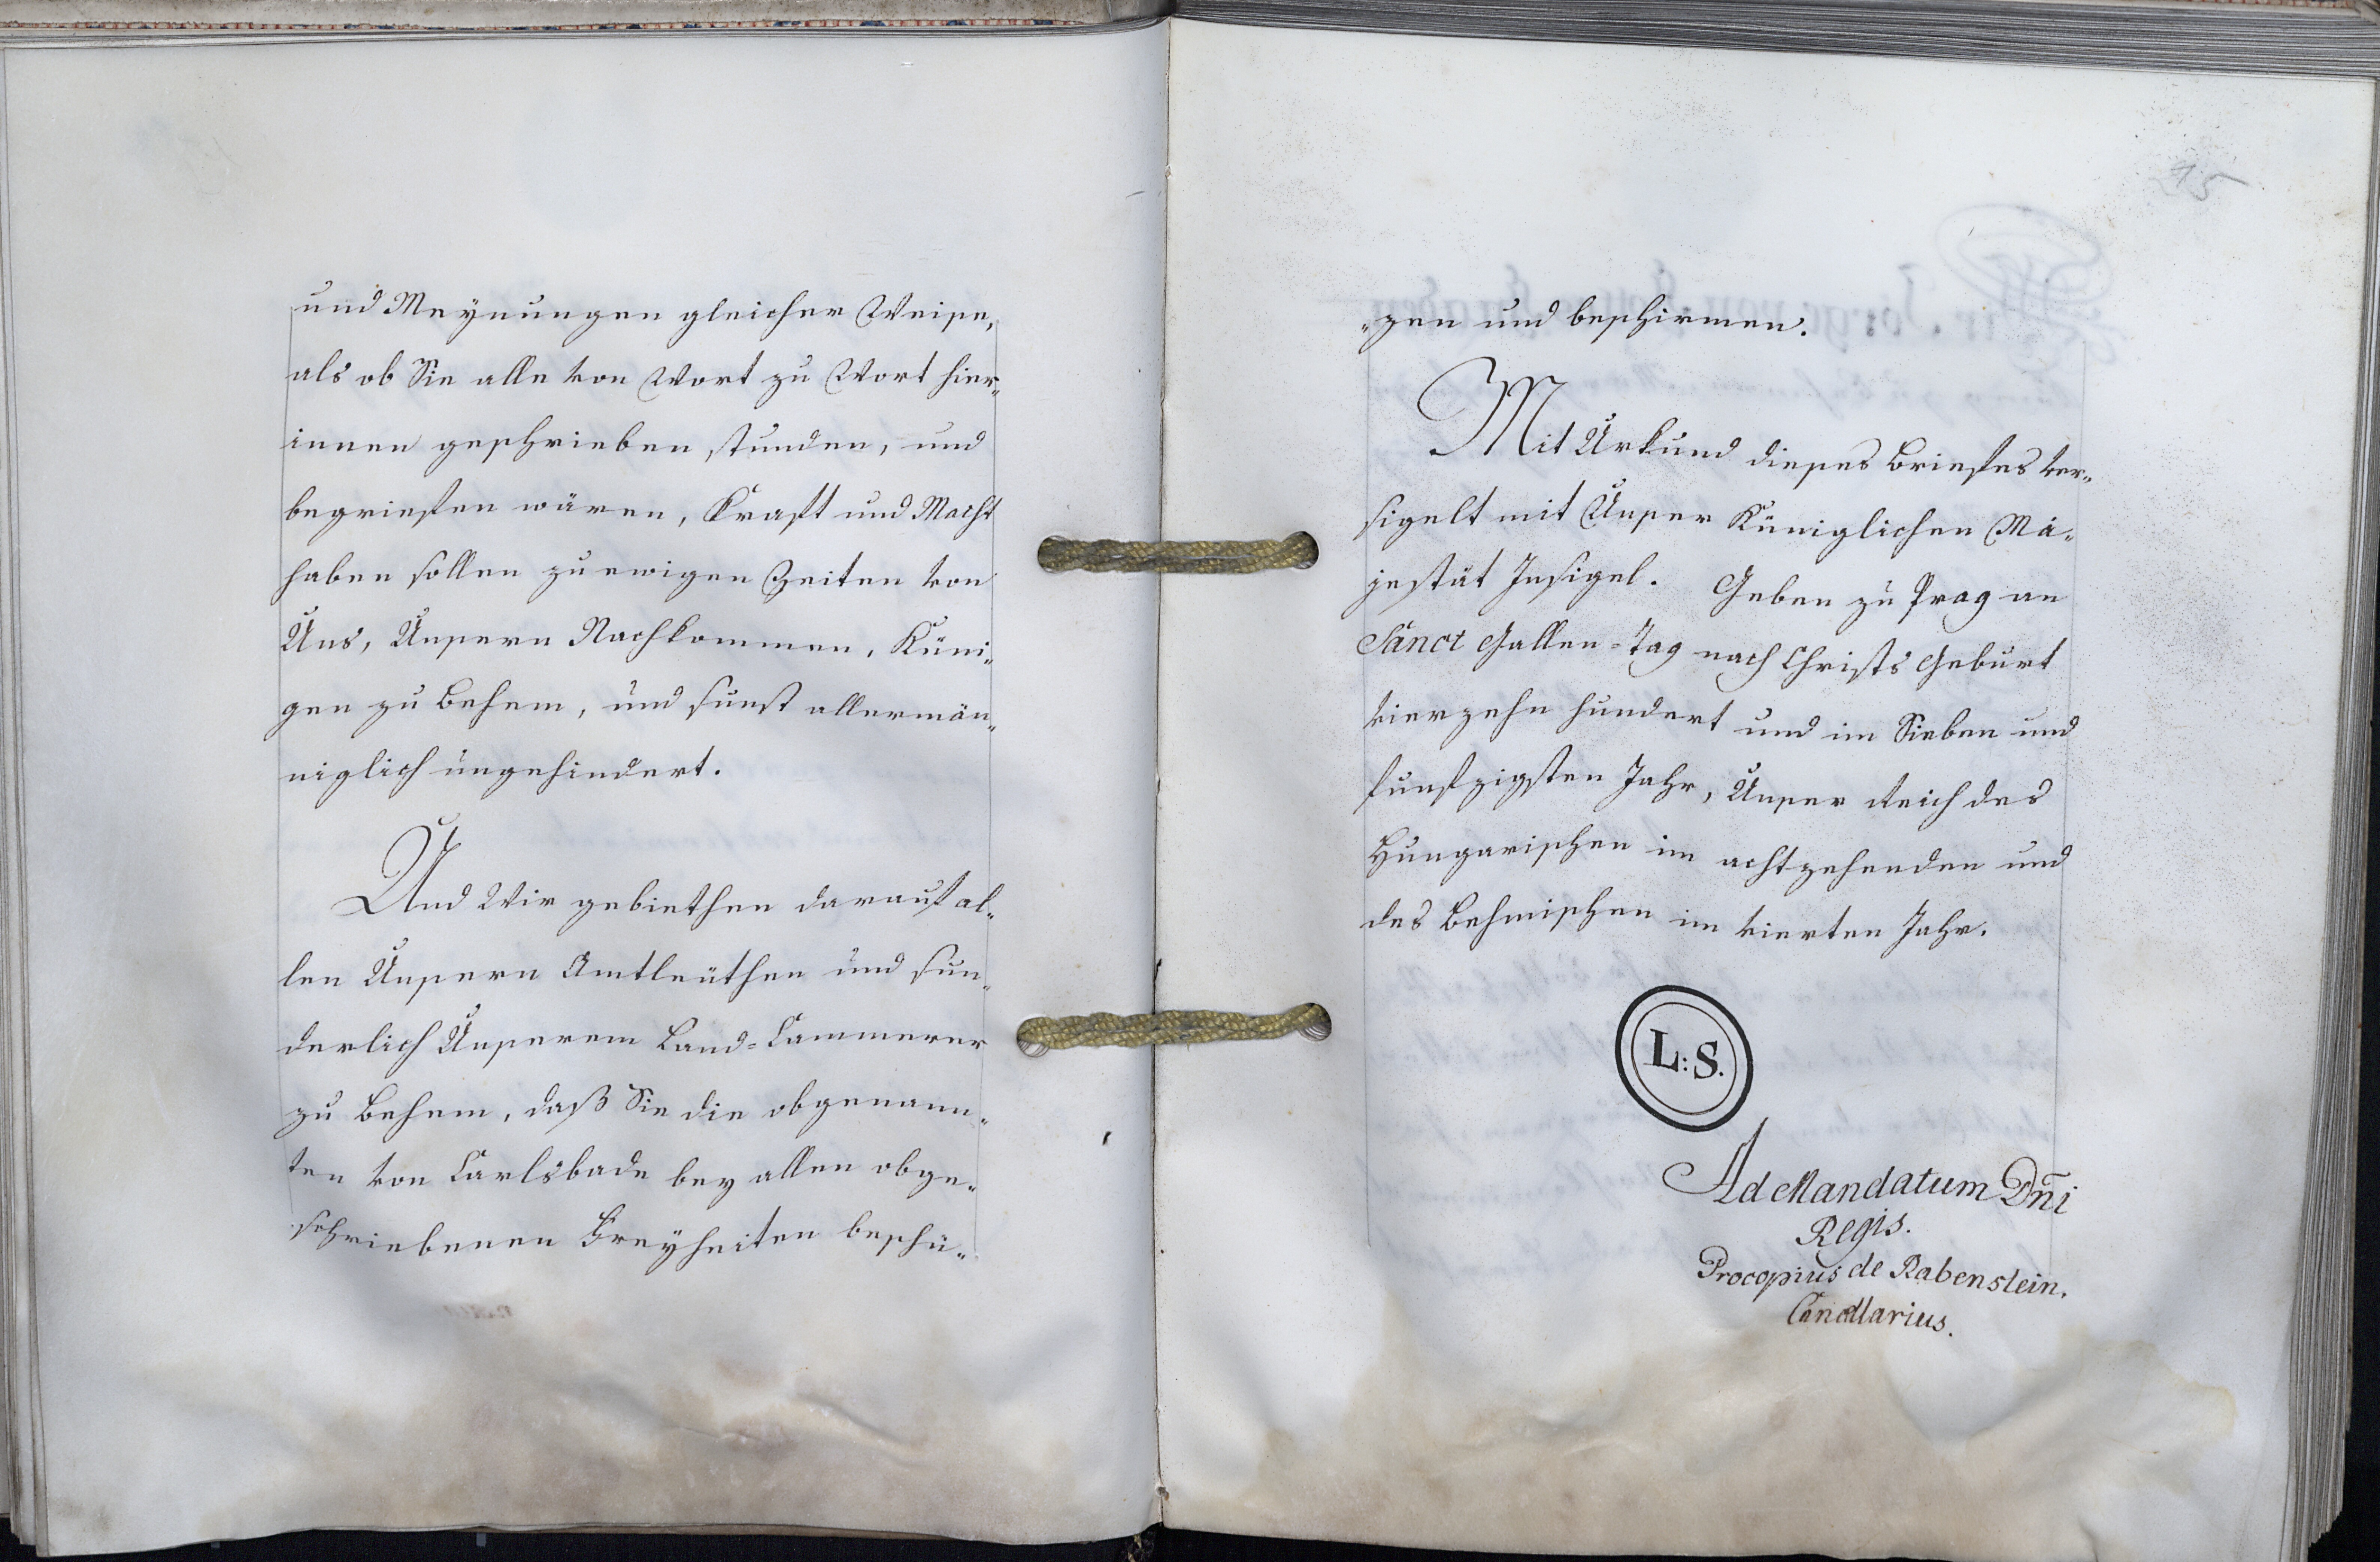 und Meynungen gleicher Weise,
als ob Sie alle von Wort zu Wort hier„
innen geschrieben stunden, und
begrieffen wären, Krafft und Macht
haben sollen zu ewigen Zeiten von
Uns, Unsern Nachkommen, Küni„
gen zu Behem, und sunst allermän„
niglich ungehindert.
Und Wir gebiethen darauf al„
len Unsern Amtleuthen und sun„
derlich Unserem Land=Cammerer
zu Behem, daß Sie die obgenann„
ten von Carlsbade bey allen obge„
schriebenen Freyheiten beschü„
„zen und beschirmen.
Mit Urkund dieses Briefes ver„
sigelt mit Unser Küniglichen Ma„
jestät Insigel. Geben zu Prag an
Sanct Gallen=Tag nach Christs Geburt
vierzehn hundert und im Sieben und
funfzigsten Jahr, Unser Reich des
Hungarischen im achtzehenden und
des Behmischen im vierten Jahr.
L:S.
Ad Mandatum Dn̄i
Regis.
Procopius de Rabenstein.
Cancellarius.